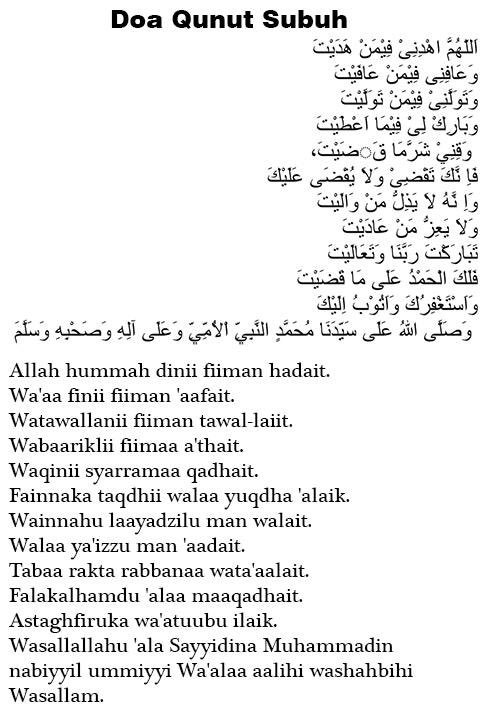 Doa Qunut Subuh
اَللّٰهُمَّ اهْدِنِىْ فِيْمَنْ هَدَيْتَ
وَعَافِنِى فِيْمَنْ عَافَيْتَ
وَتَوَلَّنِىْ فِيْمَنْ تَوَلَّيْتَ
وَبَارِكْ لِىْ فِيْمَا اَعْطَيْتَ
وَقِنِيْ شَرَّمَا قَضَيْتَ،
فَاِ نَّكَ تَقْضِىْ وَلاَ يُقْضَى عَلَيْكَ
وَاِ نَّهُ لاَ يَذِلُّ مَنْ وَالَيْتَ
وَلاَ يَعِزُّ مَنْ عَادَيْتَ
تَبَارَكْتَ رَبَّنَا وَتَعَالَيْتَ
فَلَكَ الْحَمْدُ عَلَى مَا قَضَيْتَ
وَاَسْتَغْفِرُكَ وَاَتُوْبُ اِلَيْكَ
وَصَلَّى اللهُ عَلَى سَيِّدَنَا مُحَمَّدٍ النَّبِيِّ اْلأُمِّيِّ وَعَلَى آلِهِ وَصَحْبِهِ وَسَلَّمَ
Allah hummah dinii fiiman hadait.
Wa'aa finii fiiman 'aafait.
Watawallanii fiiman tawal-laiit.
Wabaariklii fiimaa a'thait.
Waqinii syarramaa qadhait.
Fainnaka taqdhii walaa yuqdha 'alaik.
Wainnahu laayadzilu man walait.
Walaa ya'izzu man 'aadait.
Tabaa rakta rabbanaa wata'aalait.
Falakalhamdu 'alaa maaqadhait.
Astaghfiruka wa'atuubu ilaik.
Wasallallahu 'ala Sayyidina Muhammadin
nabiyyil ummiyyi Wa'alaa aalihi washahbihi
Wasallam.